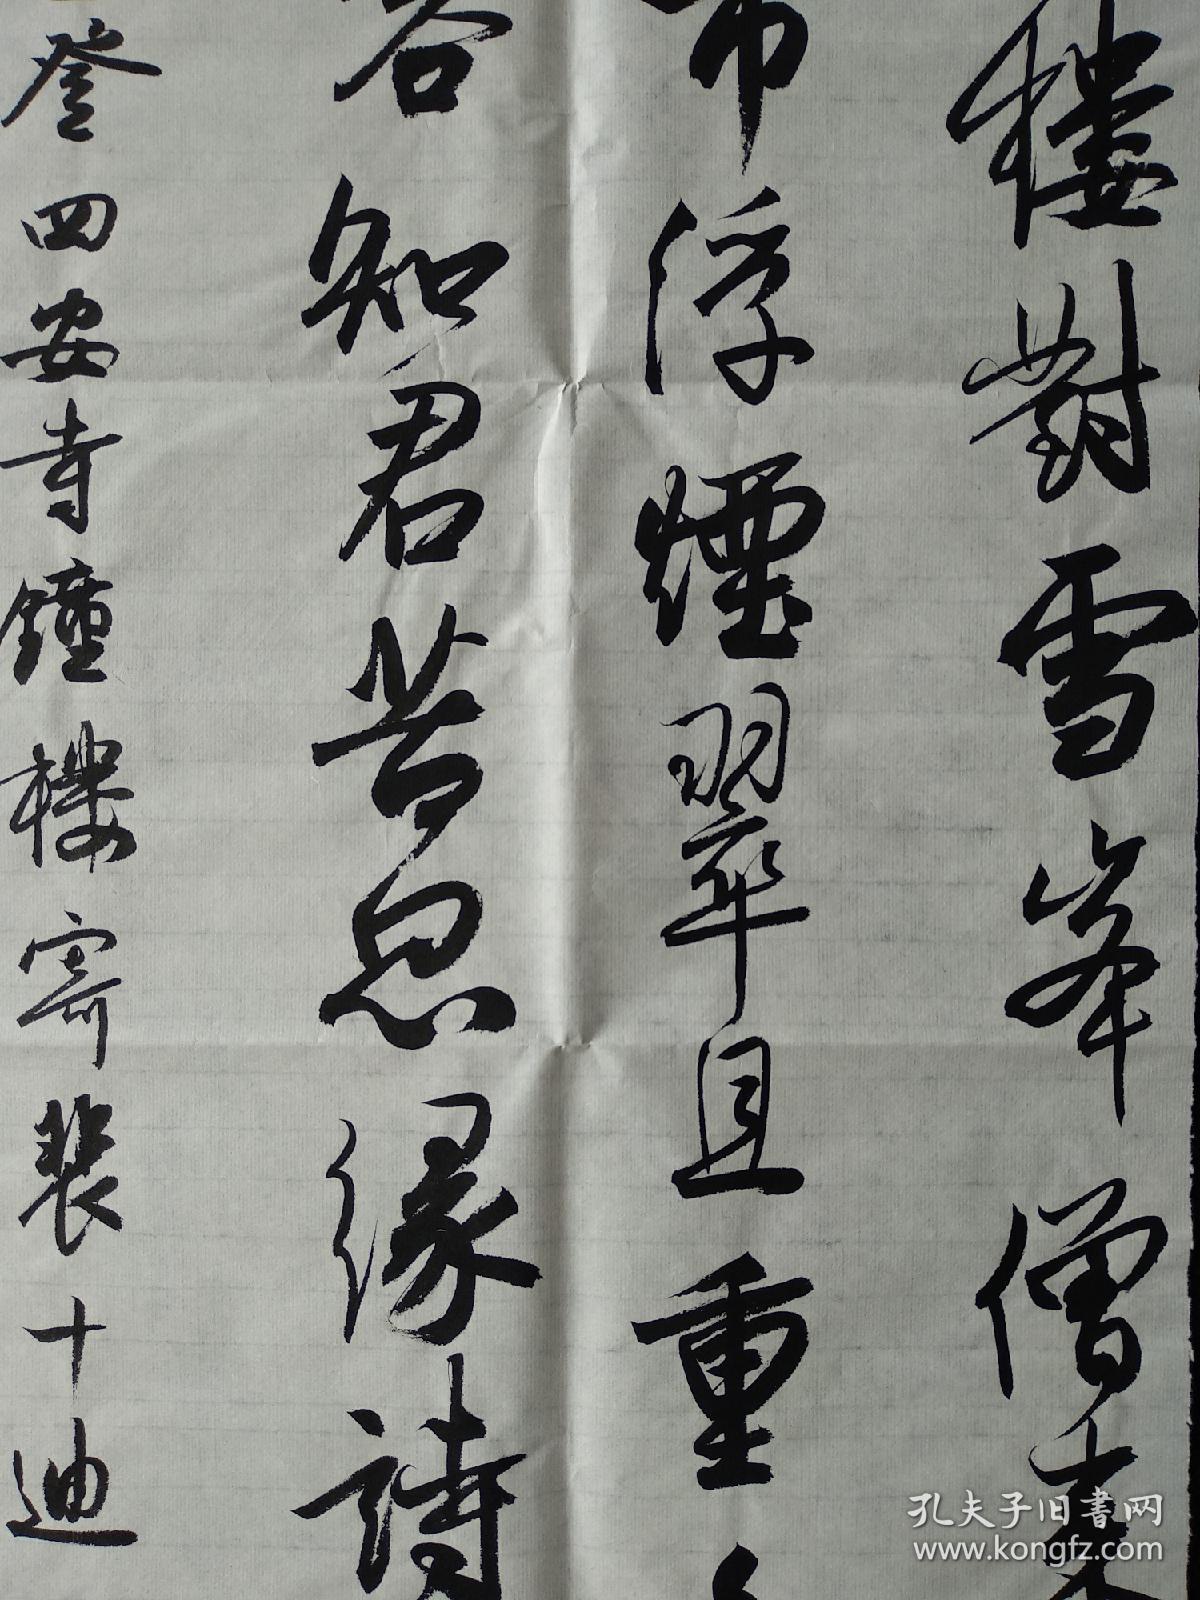 樓對雪峯僧來
市浮煙翠且重
容知君苦思緣詩
登四安寺鐘樓寄裴十迪
孔夫子旧书网
www.kongfz.com